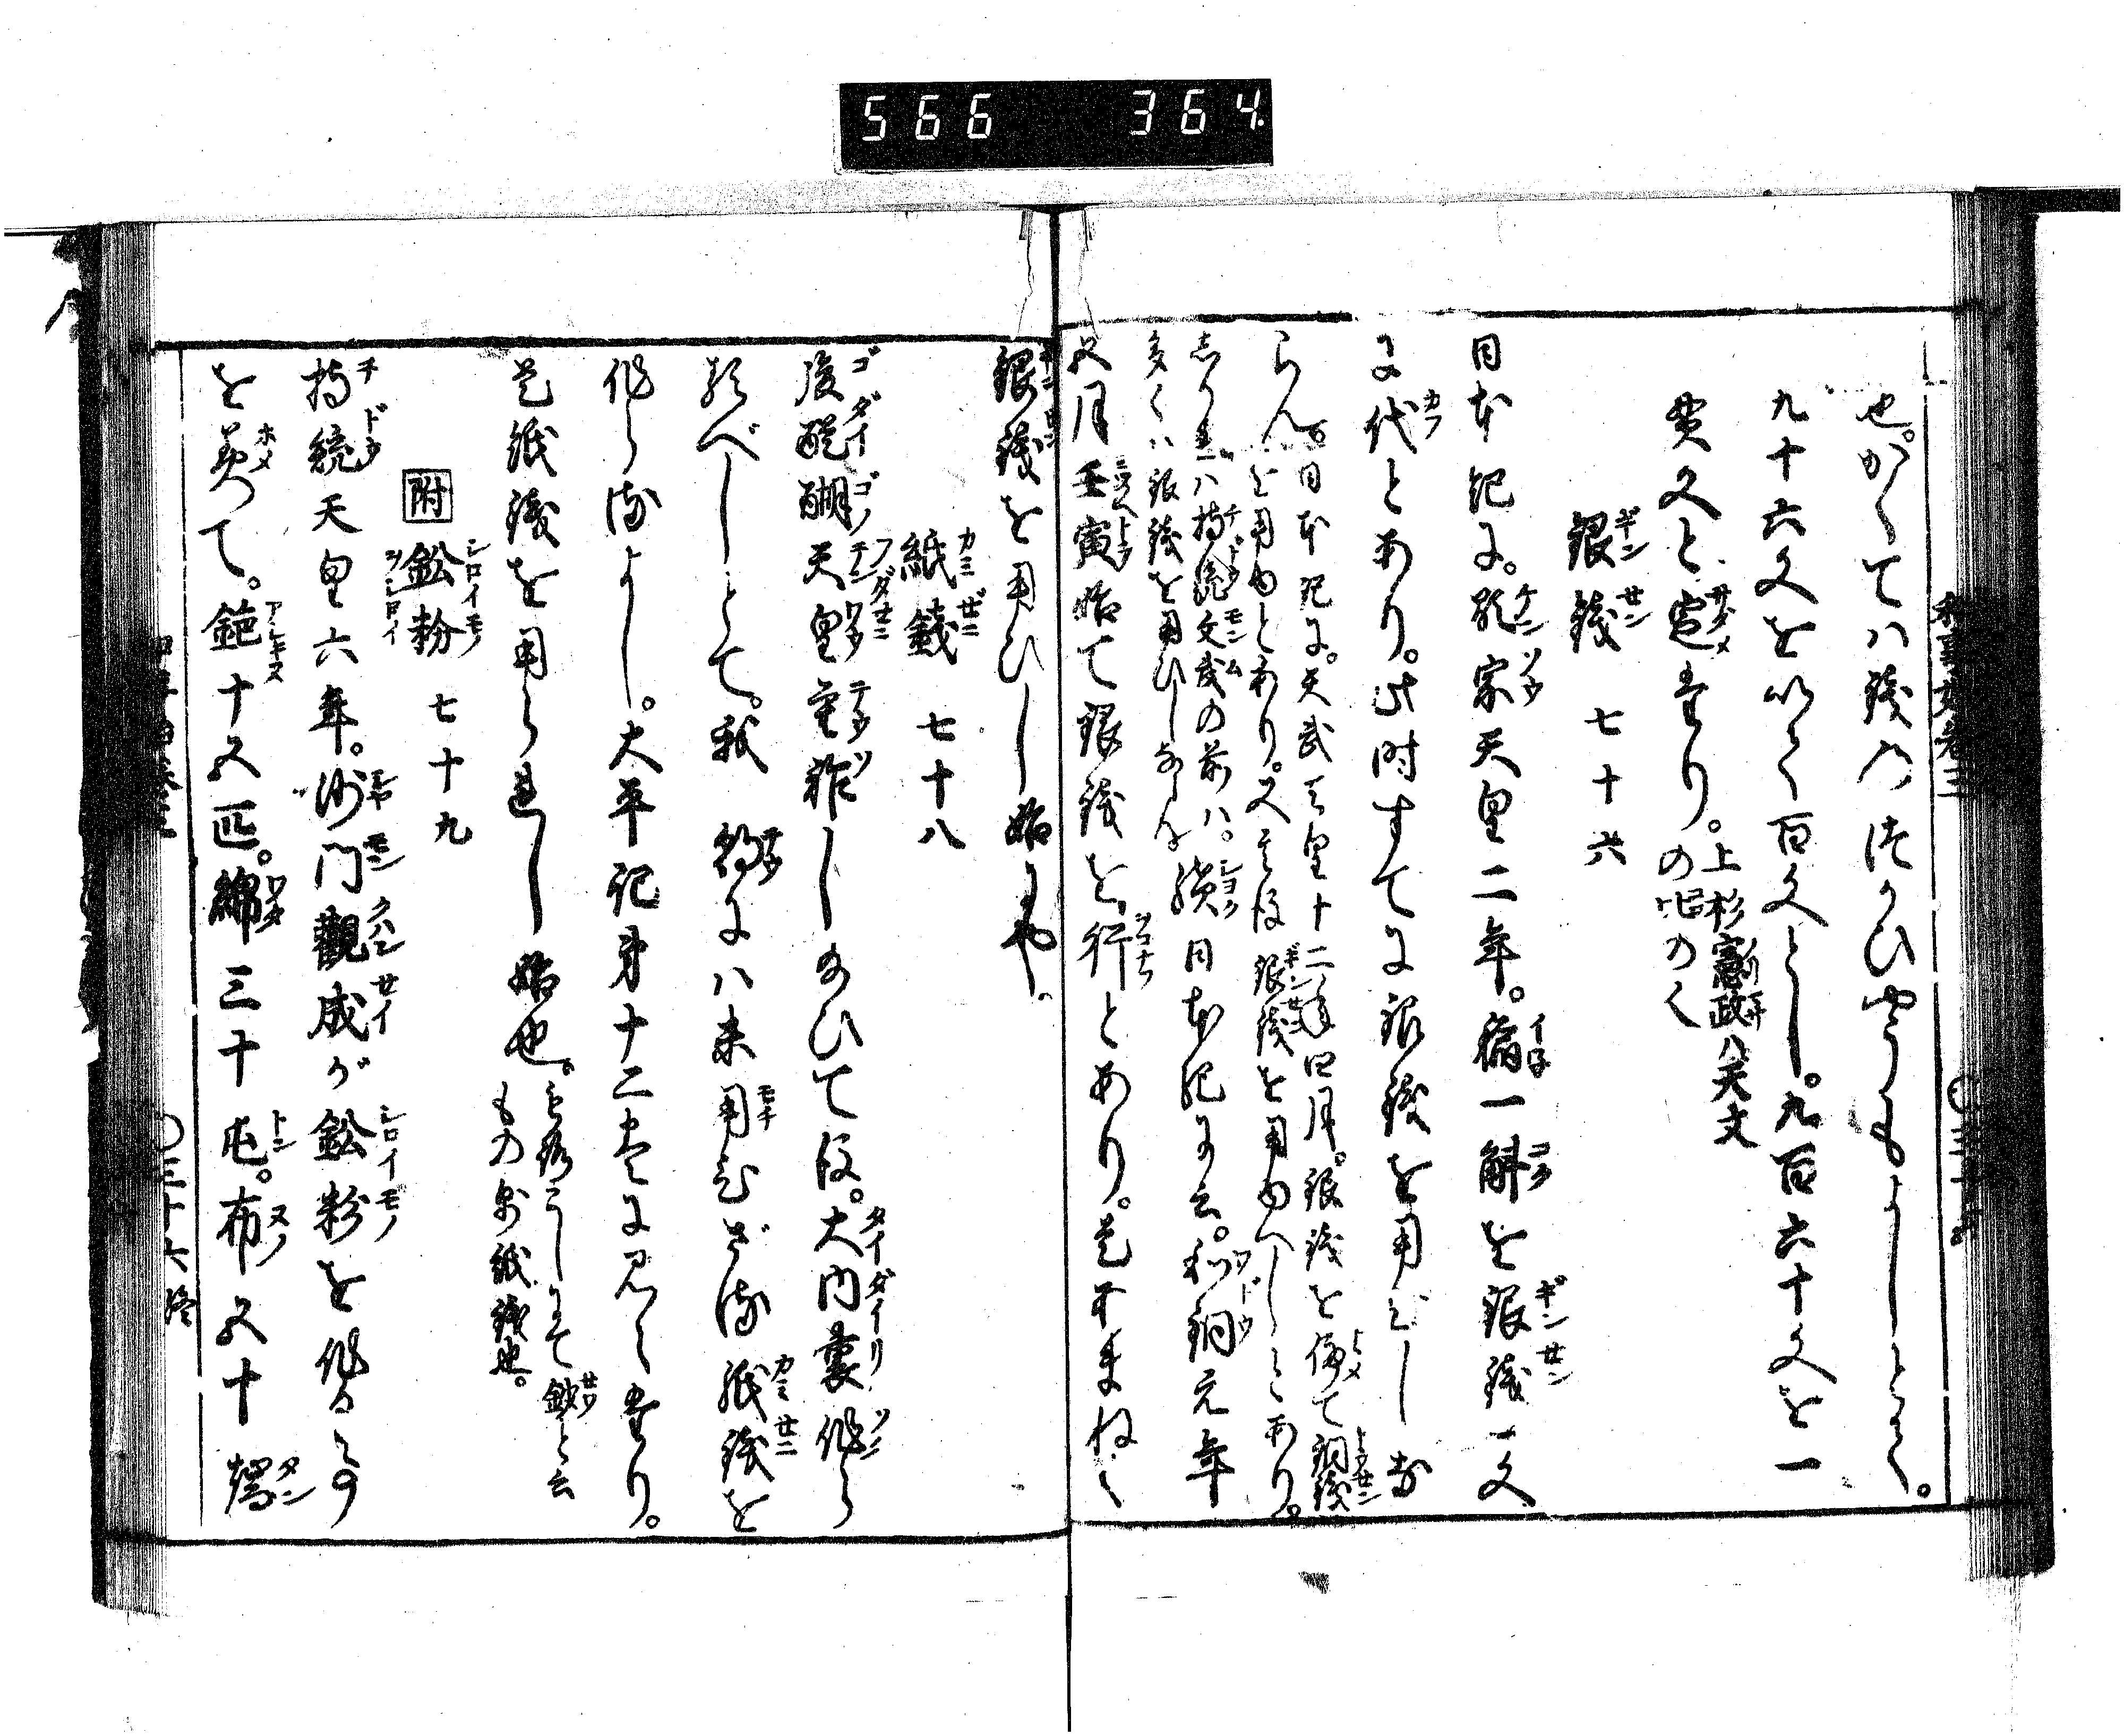 566 364
也。かくてハ銭のつかひやうもよしとて。
九十六文を以て百文とし。九百六十文を一
貫文と定たり。上杉憲政ハ天文の比の人
銀銭 七十六
日本紀に。顕宗天皇二年。稲一斛を銀銭一文
に代とあり。此時すてに銀銭を用ひしな
らん。日本紀に。天武天皇十二年四月。銀銭を停て銅銭
を用ゆとあり。又其後銀銭を用ゆへしとあり。
しかれハ持統文武の前ハ。
多くハ銀銭を用ひしならん
續日本紀に云。和銅元年
五月壬寅始て銀銭を行とあり。是あまねく
銀銭を用ひし始にや。
紙銭 七十八
後醍醐天皇重祚し給ひて後。大内裏作ら
るべしとて。我朝にハ未用ひざる紙銭を
作らるよし。大平記第十二巻に見へたり。
是紙銭を用られし始也。もろこしにて鈔と云
もの乃紙銭也。
附 鈆粉 七十九
持統天皇六年。沙門觀成が鈆粉を作る事
を美て。絁十五匹。綿三十屯。布五十端
三十六終